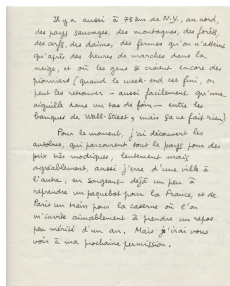 Il y a aussi à 75 km de N.Y., au nord,
des pays sauvages, des montagnes, des forêts,
des cerfs, des daims, des fermes qu'on n'atteint
qu'après des heures de marches dans la
neige, et où les gens se croient encore des
pionniers (quand le week-end est fini, on
peut les retrouver - aussi facilement qu'une
aiguille dans un tas de foin - entre les
banques de Wall-Street, mais ça ne fait rien)
Pour le moment, j'ai découvert les
autobus, qui parcourent tout le pays pour des
prix très modiques, lentement mais
agréablement, aussi j'erre d'une ville à
l'autre, en songeant déjà un peu à
reprendre un paquebot pour la France, et de
Paris un train pour la caserne où l'on
m'invite aimablement à prendre un repos
pas mérité d'un an. Mais j'irai vous
voir à ma prochaine permission.